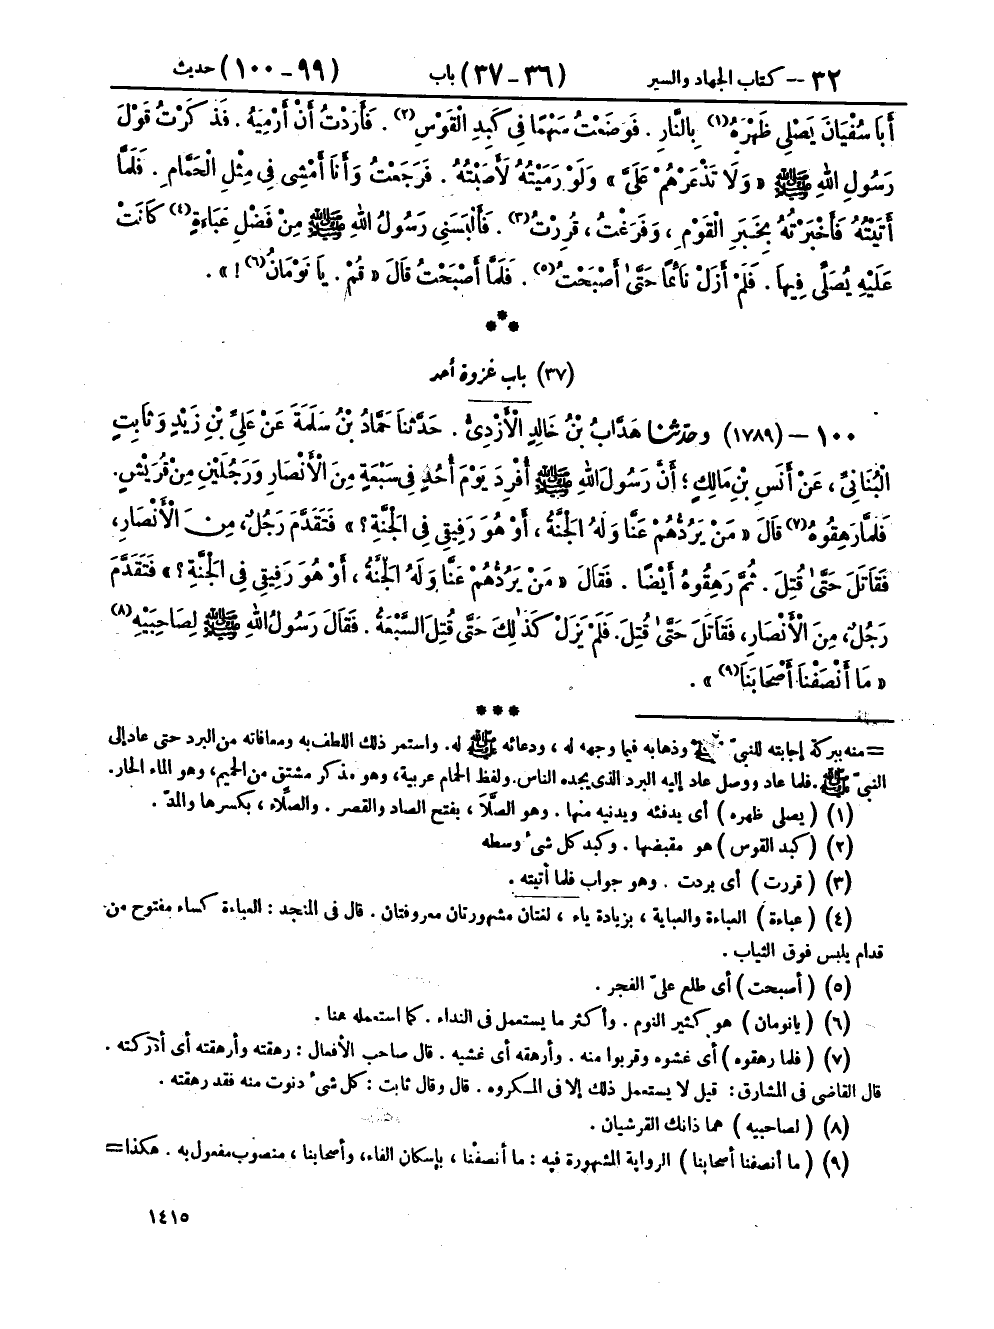 ٣٢ – كتاب الجهاد والسير (٣٦ – ٣٧) باب (٩٩ – ١٠٠) حديث
أَبَا سُفْيَانَ يَصْلِي ظَهْرَهُ(١) بِالنَّارِ . فَوَضَعْتُ سَهْمًا فِي كَبِدِ الْقَوْسِ(٢) . فَأَرَدْتُ أَنْ أَرْمِيَهُ . فَذَكَرْتُ قَوْلَ
رَسُولِ اللهِ ﷺ « وَلَا تَذْعَرْهُمْ عَلَيَّ » وَلَوْ رَمَيْتُهُ لَأَصَبْتُهُ . فَرَجَعْتُ وَأَنَا أَمْشِي فِي مِثْلِ الْحَمَّامِ . فَلَمَّا
أَتَيْتُهُ فَأَخْبَرْتُهُ بِخَبَرِ الْقَوْمِ ، وَفَرَغْتُ ، قُرِرْتُ(٣) . فَأَلْبَسَنِي رَسُولُ اللهِ ﷺ مِنْ فَضْلِ عَبَاءَةٍ(٤) كَانَتْ
عَلَيْهِ يُصَلِّي فِيهَا . فَلَمْ أَزَلْ نَائِمًا حَتَّىٰ أَصْبَحْتُ(٥) . فَلَمَّا أَصْبَحْتُ قَالَ « قُمْ . يَا نَوْمَانُ(٦) ! » .
***
(٣٧) باب غزوة أحد
١٠٠ – (١٧٨٩) وحَدَّثَنَا هَدَّابُ بْنُ خَالِدٍ الْأَزْدِيُّ . حَدَّثَنَا حَمَّادُ بْنُ سَلَمَةَ عَنْ عَلِيِّ بْنِ زَيْدٍ وَثَابِتٍ
الْبُنَانِيِّ ، عَنْ أَنَسِ بْنِ مَالِكٍ ؛ أَنَّ رَسُولَ اللهِ ﷺ أُفْرِدَ يَوْمَ أُحُدٍ فِي سَبْعَةٍ مِنَ الْأَنْصَارِ وَرَجُلَيْنِ مِنْ قُرَيْشٍ.
فَلَمَّا رَهِقُوهُ(٧) قَالَ « مَنْ يَرُدُّهُمْ عَنَّا وَلَهُ الْجَنَّةُ ، أَوْ هُوَ رَفِيقِي فِي الْجَنَّةِ ؟ » فَتَقَدَّمَ رَجُلٌ، مِنَ الْأَنْصَارِ،
فَقَاتَلَ حَتَّىٰ قُتِلَ . ثُمَّ رَهِقُوهُ أَيْضًا . فَقَالَ « مَنْ يَرُدُّهُمْ عَنَّا وَلَهُ الْجَنَّةُ ، أَوْ هُوَ رَفِيقِي فِي الْجَنَّةِ ؟ » فَتَقَدَّمَ
رَجُلٌ، مِنَ الْأَنْصَارِ، فَقَاتَلَ حَتَّىٰ قُتِلَ. فَلَمْ يَزَلْ كَذَٰلِكَ حَتَّى قُتِلَ السَّبْعَةُ . فَقَالَ رَسُولُ اللهِ ﷺ لِصَاحِبَيْهِ(٨)
« مَا أَنْصَفْنَا أَصْحَابَنَا(٩) » .
***
= منه ببركة إجابته للنبيّ ﷺ وذهابه فيما وجهه له ، ودعائه ﷺ له. واستمر ذلك اللطف به ومعافاته من البرد حتى عاد إلى
النبيّ ﷺ . فلما عاد ووصل عاد إليه البرد الذي يجده الناس. ولفظ الحمام عربية، وهو مذكر مشتق من الحميم، وهو الماء الحار.
(١) ( يصلى ظهره ) أى يدفئه ويدنيه منها . وهو الصَّلَا ، بفتح الصاد والقصر . والصِّلاء ، بكسرها والمدّ .
(٢) ( كبد القوس ) هو مقبضها . وكبد كل شىء وسطه
(٣) ( قررت ) أى بردت . وهو جواب فلما أتيته .
(٤) ( عباءة ) العباءة والعباية ، بزيادة ياء ، لغتان مشهورتان معروفتان . قال فى المنجد : العباءة كساء مفتوح من
قدام يلبس فوق الثياب .
(٥) ( أصبحت ) أى طلع علىّ الفجر .
(٦) ( يانومان ) هو كثير النوم . وأكثر ما يستعمل فى النداء . كما استعمله هنا .
(٧) ( فلما رهقوه ) أى غشوه وقربوا منه . وأرهقه أى غشيه . قال صاحب الأفعال : رهقته وأرهقته أى أدركته .
قال القاضى فى المشارق : قيل لا يستعمل ذلك إلا فى المكروه . قال وقال ثابت : كل شىء دنوت منه فقد رهقته .
(٨) ( لصاحبيه ) هما ذانك القرشيان .
(٩) ( ما أنصفنا أصحابنا ) الرواية المشهورة فيه : ما أنصفْنا ، بإسكان الفاء، وأصحابنا ، منصوب مفعول به . هكذا =
١٤١٥